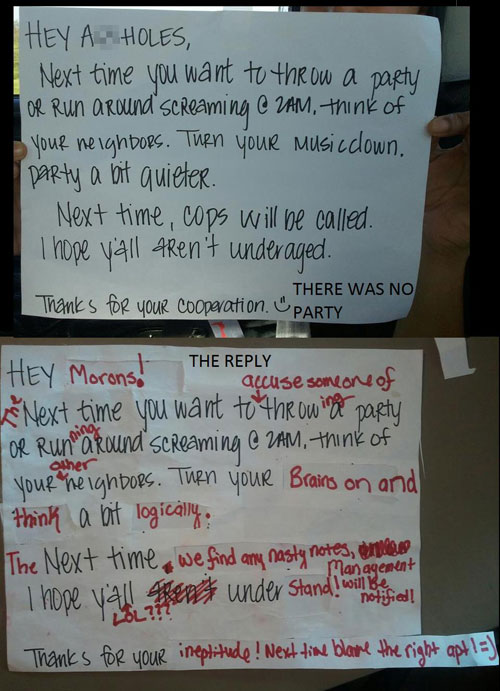 HEY A HOLES,
Next time you want to throw a party
or run around screaming @ 2AM, think of
your neighbors. Turn your music down.
Party a bit quieter.
Next time, cops will be called.
I hope y'all aren't underaged.
Thanks for your cooperation. :)
THERE WAS NO
PARTY
THE REPLY
HEY Morons!
accuse someone of
The Next time you want to throwing a party
or running around screaming @ 2AM, think of
your other neighbors. Turn your Brains on and
think a bit logically.
The Next time, we find any nasty notes,
Management
will be
notified!
I hope y'all under Stand!
LOL???
Thanks for your ineptitude! Next time blame the right apt! =)